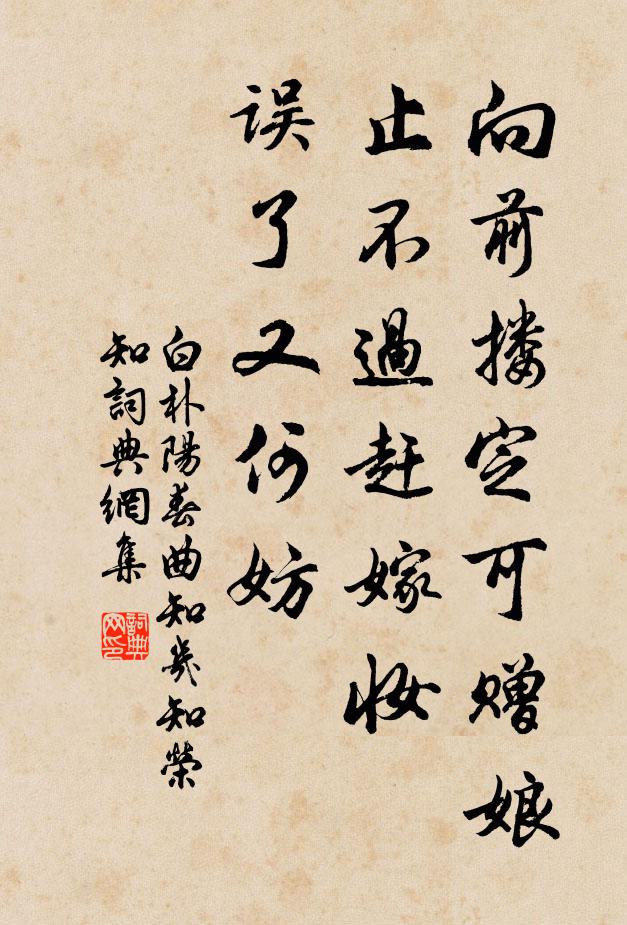 向前搂定可赠娘
止不過赶嫁妆
误了又何妨
白朴陽春曲知幾知榮
知詞典網集
詞典网印